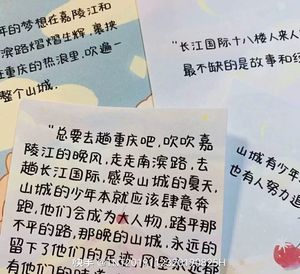 年的梦想在嘉陵江和
南滨路熠熠生辉,裹挟
在重庆的热浪里,吹遍
整个山城
"长江国际十八楼人来人
最不缺的是故事和
"总要去趟重庆吧,吹吹嘉
陵江的晚风,走走南滨路,去
趟长江国际,感受山城的夏天,
山城的少年本就应该肆意奔
跑,他们会成为大人物,踏平那
不平的路,那晚的山城,永远的
留下了他们的足迹
山城有少年
也有人努力追